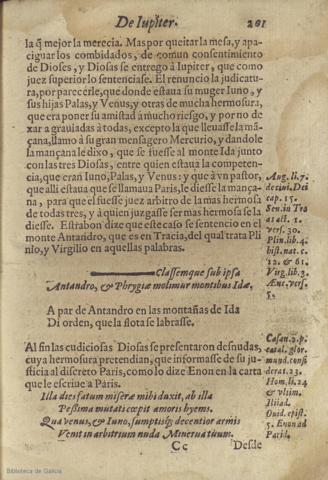 De Iupiter. 201
la q̃ mejor la merecia. Mas por queitar la mesa, y apa-
ciguar los combidados, de comun consentimiento
de Dioses, y Diosas se entregò à Iupiter, que como
juez superior lo sentenciasse. El renuncio la judicatu-
ra, por parecerle, que donde estaua su muger Iuno, y
sus hijas Palas, y Venus, y otras de mucha hermosura,
que era poner su amistad à mucho riesgo, y por no de
xar a grauiadas à todas, excepto la que lleuasse la mã-
çana, llamò a su gran mensagero Mercurio, y dandole
la mançana le dixo, que se fuesse al monte Ida junto
con las tres Diosas, entre quien estaua la competen-
cia, que eran Iuno, Palas, y Venus: y que à vn pastor,
que alli estaua que se llamaua Paris, le diesse la mança-
na, para que el fuesse juez arbitro de la mas hermosa
de todas tres, y à quien juzgasse ser mas hermosa se la
diesse. Estrabon dize que este caso se sentencio en el
monte Antandro, que es en Tracia, del qual trata Pli
nio, y Virgilio en aquellas palabras.
Aug. li. 7.
de ciui. Dei
cap. 15.
Sen. in Tro
as act. 1.
vers. 30.
Plin. lib. 4.
hist. nat. c.
12. & 61.
Virg. lib. 3.
Æne. vers.
5.
Classemque sub ipsa
Antandro, & Phrygiæ molimur montibus Idæ,
A par de Antandro en las montañas de Ida
Di orden, que la flota se labrasse.
Al fin las cudiciosas Diosas se presentaron desnudas,
cuya hermosura pretendian, que informasse de su ju-
sticia al discreto Paris, como lo dize Enon en la carta
que le escriue a Paris.
Illa dies fatum miseræ mihi duxit, ab illa
Pessima mutati cœpit amoris hyems.
Qua venus, & Iuno, sumptisq; decentior armis
Venit in arbitrium nuda Minerua tuum.
Casan. 2. p.
catal. glor.
mund. consi
derat. 23.
Hom. li. 24
& vltim.
Iliad.
Ouid. epist.
5. Enon ad
Parid.
Cc Desde
Biblioteca de Galicia